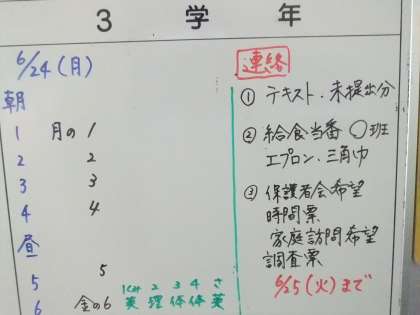 3 学 年
6/24(月)
朝
1 月の1
2 2
3 3
4 4
昼
5 5
6 金の6
1cm 2 3 4 さ
英 理 体 体 英
連絡
① テキスト・未提出分
② 給食当番 ○班
エプロン・三角巾
③ 保護者会希望
時間票
家庭訪問希望
調査票
6/25(火)まで